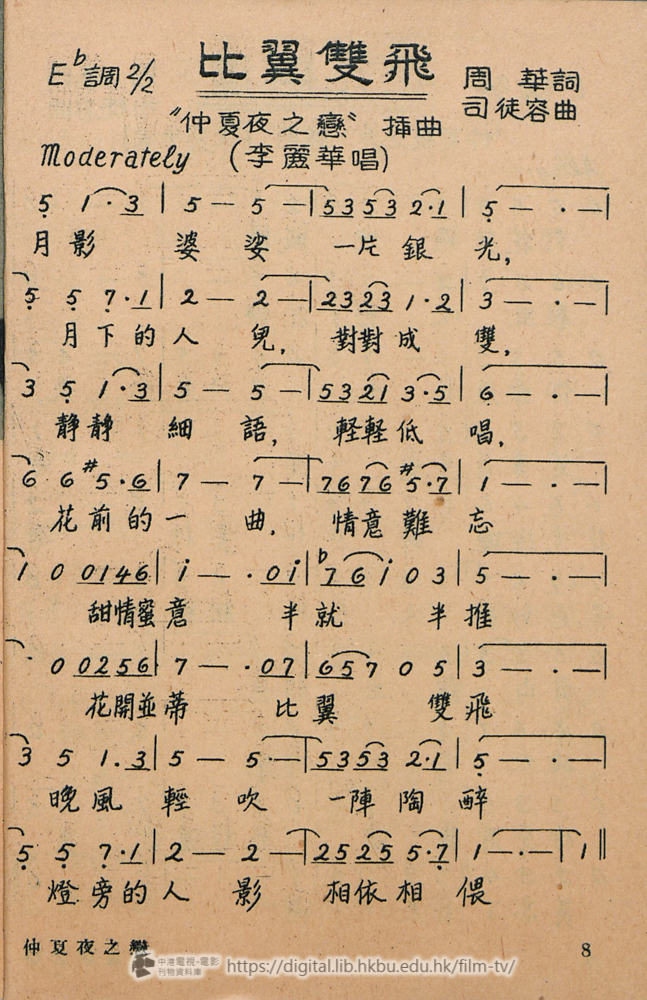 比翼雙飛
E♭調 2/2
周 華詞
司徒容曲
"仲夏夜之戀" 插曲
Moderately (李麗華唱)
5̣ 1·3 | 5 — 5 — | 53 53 2·1 | 5̣ — · — |
月影 婆 娑 一片 銀 光,
5̣ 5̣ 7̣·1 | 2 — 2 — | 23 23 1·2 | 3 — · — |
月下的人 兒, 對對成 雙,
3 5̣ 1·3 | 5 — 5 — | 53 21 3·5̣ | 6̣ — · — |
静静 細 語, 輕輕低 唱,
6 6 #5·6 | 7 — 7 — | 76 76 #5·7 | 1 — · — |
花前的一 曲, 情意難 忘
1 0 0146 | i — · 0i | ♭7 6 i 0 3 | 5 — · — |
甜情蜜意 半就 半推
· 0 0256 | 7 — · 07 | 657 0 5 | 3 — · — |
花開並蒂 比翼 雙飛
3 5 1.3 | 5 — 5·— | 53 53 2·1 | 5̣ — · — |
晚風 輕 吹 一陣陶 醉
5̣ 5̣ 7̣·1 | 2 — 2 — | 25 25 5·7̣ | 1 — · — | 1 ‖
燈旁的人 影 相依相 偎
仲夏夜之戀
8
中港電視-電影
刊物資料庫
https://digital.lib.hkbu.edu.hk/film-tv/